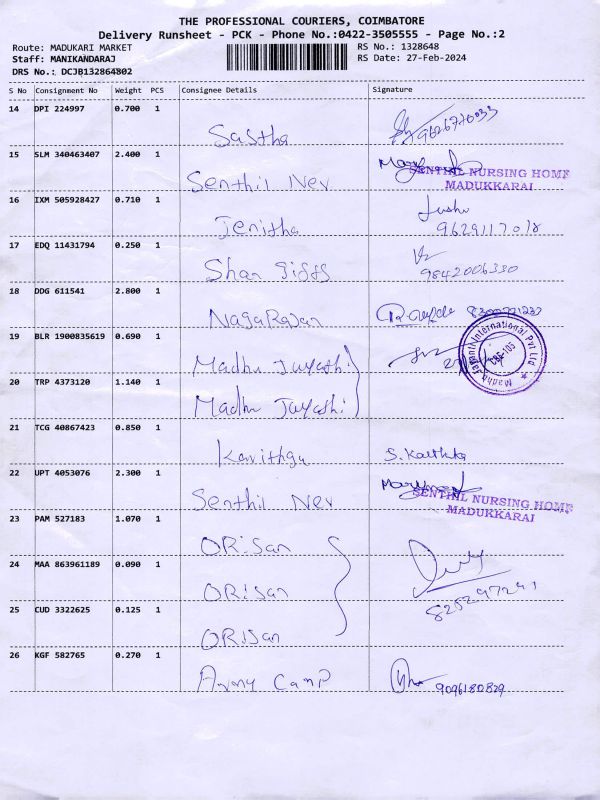 THE PROFESSIONAL COURIERS, COIMBATORE
Delivery Runsheet - PCK - Phone No.:0422-3505555 - Page No.:2
Route: MADUKARI MARKET
RS No.: 1328648
Staff: MANIKANDARAJ
RS Date: 27-Feb-2024
DRS No.: DCJB132864802
S No Consignment No Weight PCS Consignee Details Signature
14 DPI 224997 0.700 1
Sastha 9626776033
15 SLM 340463407 2.400 1
Senthil Nev
SENTHIL NURSING HOME
MADUKKARAI
16 IXM 505928427 0.710 1
Jenitha 9629117018
17 EDQ 11431794 0.250 1
Shan Gifts 9842006330
18 DDG 611541 2.800 1
NagaRajan
19 BLR 1900835619 0.690 1
Madhu Jayashi
Madhu Jayanthi International Pvt Ltd
CBE-105
20 TRP 4373120 1.140 1
Madhu Jayashi
21 TCG 40867423 0.850 1
Kavithga S. Kavithka
22 UPT 4053076 2.300 1
Senthil Nev
SENTHIL NURSING HOME
MADUKKARAI
23 PAM 527183 1.070 1
ORiSan
24 MAA 863961189 0.090 1
ORiSan
25 CUD 3322625 0.125 1
ORiSan
26 KGF 582765 0.270 1
Camp 9096180829